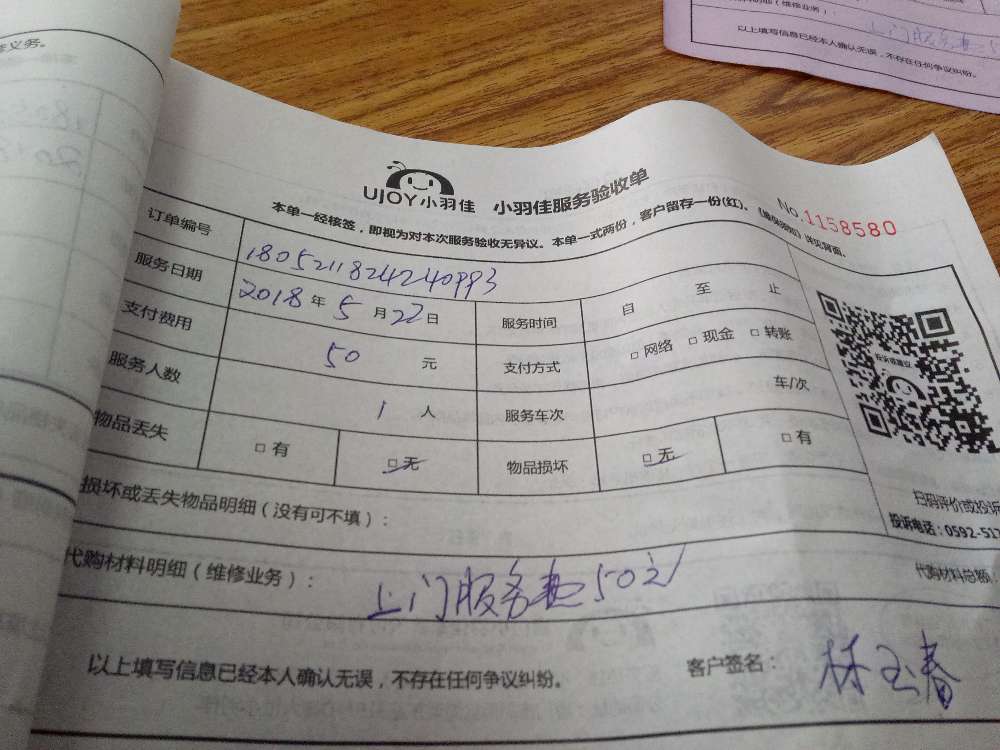 修义务。
以上填写信息已经本人确认无误，不存在任何争议纠纷。
UJOY小羽佳 小羽佳服务验收单
No.1158580
本单一经核签，即视为对本次服务验收无异议。本单一式两份，客户留存一份(红)。
订单编号 1805211824240993
服务日期 2018年5月22日 服务时间 自 至 止
支付费用 50元 支付方式 □网络 □现金 □转账
服务人数 1人 服务车次 车/次
物品丢失 □有 □无 物品损坏 □无 □有
损坏或丢失物品明细（没有可不填）：
扫码评价或投诉
投诉电话：0592-517
代购材料明细（维修业务）： 上门服务费50元
代购材料总额：
以上填写信息已经本人确认无误，不存在任何争议纠纷。 客户签名： 林玉春